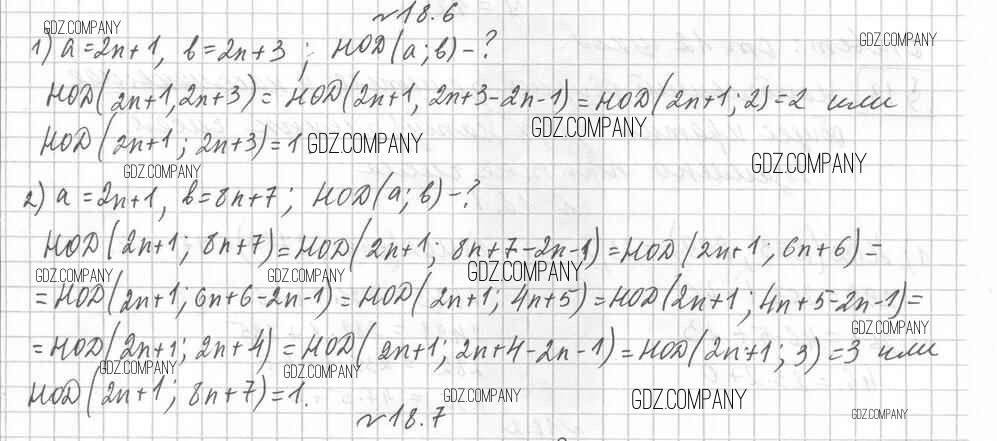 №18.6
GDZ.COMPANY
1) a=2n+1, b=2n+3; НОД(a;b)-?
GDZ.COMPANY
НОД(2n+1,2n+3)= НОД(2n+1, 2n+3-2n-1)=НОД(2n+1;2)=2 или
НОД(2n+1; 2n+3)=1 GDZ.COMPANY GDZ.COMPANY
GDZ.COMPANY GDZ.COMPANY
2) a=2n+1, b=8n+7; НОД(a;b)-?
НОД(2n+1; 8n+7)=НОД(2n+1; 8n+7-2n-1)=НОД(2n+1; 6n+6)=
GDZ.COMPANY GDZ.COMPANY GDZ.COMPANY
=НОД(2n+1; 6n+6-2n-1)= НОД(2n+1; 4n+5)=НОД(2n+1; 4n+5-2n-1)=
GDZ.COMPANY
=НОД(2n+1; 2n+4)= НОД(2n+1; 2n+4-2n-1)=НОД(2n+1; 3)=3 или
GDZ.COMPANY GDZ.COMPANY
НОД(2n+1; 8n+7)=1. GDZ.COMPANY GDZ.COMPANY
№18.7 GDZ.COMPANY